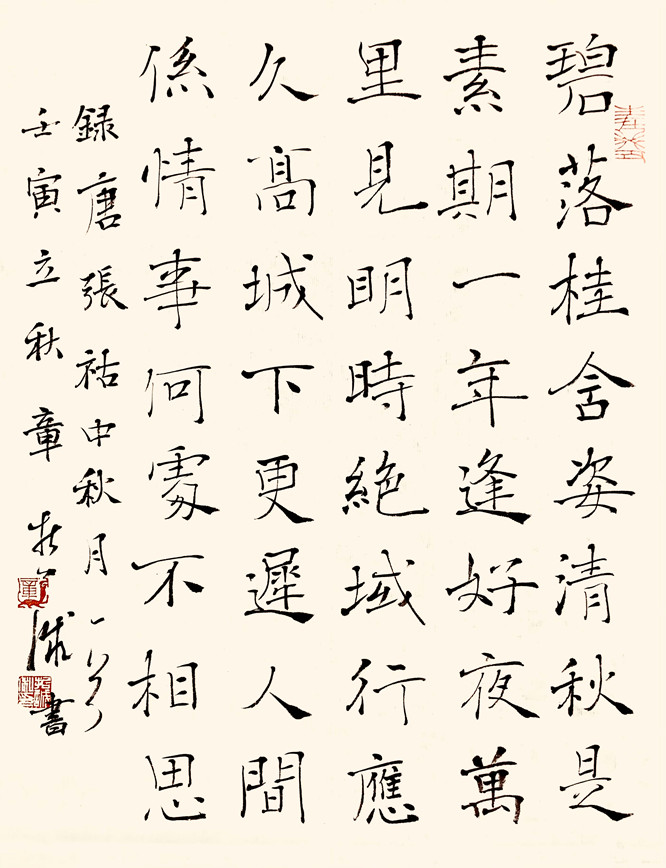 碧落桂含姿清秋是
素期一年逢好夜萬
里見明時絶域行應
久髙城下更遲人間
係情事何處不相思
録唐張祜中秋月一首
壬寅立秋章書